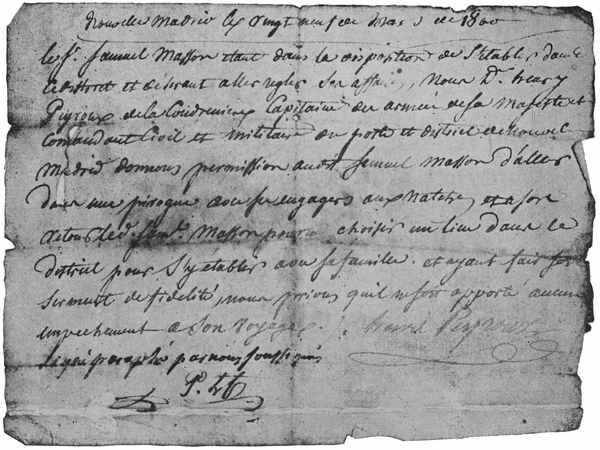 Nouvelle Madrid le vingt neuf de Mars de 1800
le Sr. Samuel Masson etant dans la disposition de S'etablir dans
le district et desirant aller regler Ses affaires, Nous Dn. henry
Peyroux de la Coudreniere Capitaine des armees de Sa Majesté et
Comandant Civil et militaire du poste et district de nouvel
Madrid donnons permission audit Samuel Masson d'aller
dans une pirogue avec ses engagers aux Natchez, et a son
retour led. Saml. Masson poura choisir un lieu dans le
district pour S'y etablir avec sa famille. et ayant fait
serment de fidelité, nous prions qu'il ne soit apporté aucun
empechement a Son voyage. henri Peyroux
paraphé par nous soussigné